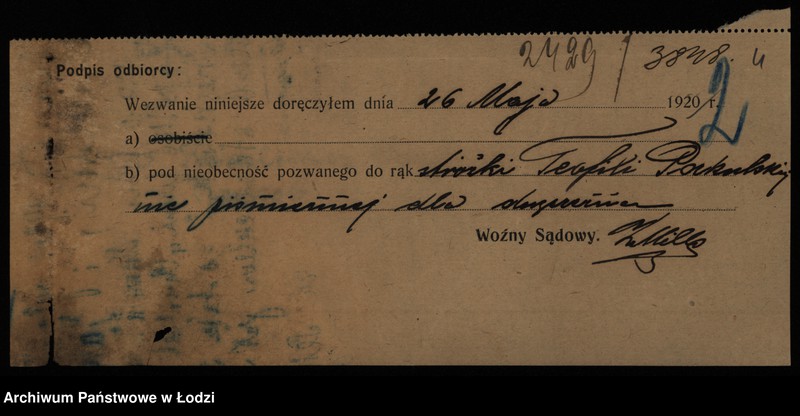 2429 / 3848. 4
2
Podpis odbiorcy:
Wezwanie niniejsze doręczyłem dnia 26 Maja 1920 r.
a) osobiście
b) pod nieobecność pozwanego do rąk stróżki Teofili
nie piśmiennej dla doręczenia
Woźny Sądowy.
Archiwum Państwowe w Łodzi